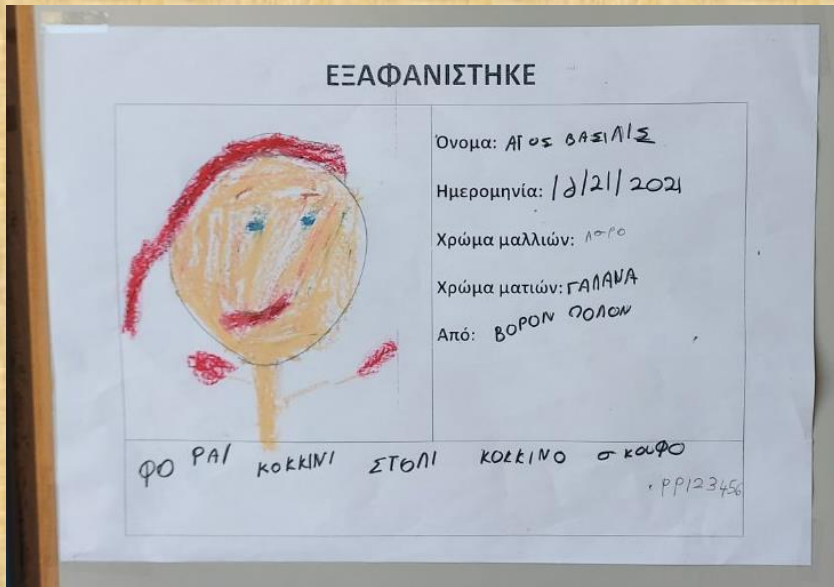 ΕΞΑΦΑΝΙΣΤΗΚΕ
Όνομα: ΑΓΟΣ ΒΑΣΙΛΙΣ
Ημερομηνία: 12/21/2021
Χρώμα μαλλιών:
Χρώμα ματιών: ΓΑΛΑΝΑ
Από: ΒΟΡΟΝ ΠΟΛΟΝ
ΦΟΡΑΙ ΚΟΚΚΙΝΙ ΣΤΟΛΙ ΚΟΚΚΙΝΟ σκουφο
PP123456